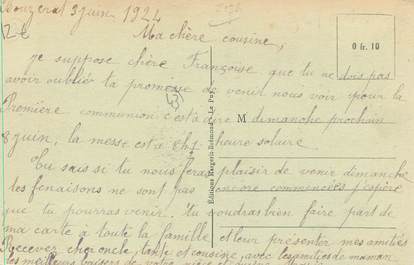 Bouzerat 3 juin 1924
Ma chère cousine,
0 fr. 10
je suppose chère Françoise que tu ne dois pas
avoir oublié ta promesse de venir nous voir pour la
Première communion c'est à dire dimanche prochain
M
8 juin, la messe est à 8h½ heure solaire
Tu sais si tu nous feras plaisir de venir dimanche
les fenaisons ne sont pas encore commencées j'espère
que tu pourras venir. Tu voudras bien faire part de
ma carte à toute la famille et leur présenter mes amitiés
Recevez cher oncle, tante et cousine, avec les amitiés de maman
les meilleurs baisers de votre nièce et
Éditions Margerit-Brémond - Le Puy